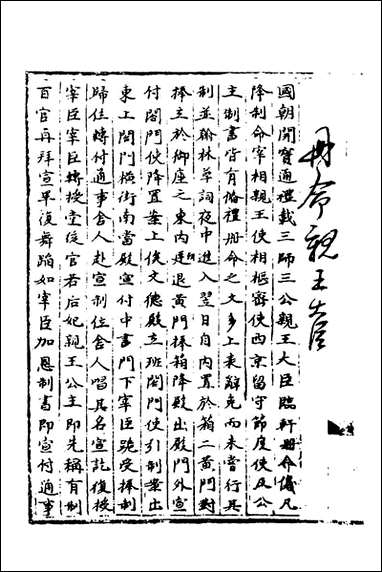 冊命親王大臣
國朝開寶通禮載三師三公親王大臣臨軒冊命儀凡
降制命宰相親王使相樞密使西京留守節度使及公
主制書皆有備禮冊命之文多上表辭免而未嘗行其
制並翰林草詞夜中進入翌日自内置於箱二黄門對
捧立於御座之東内進退黄門捧箱降殿出殿門外宣
付閤門使降置案上俟文德殿立班閤門使引制案出
東上閤門横街南當殿宣付中書門下宰臣跪受捧制
歸位轉付通事舍人赴宣制位舍人唱其名宣訖復授
宰臣宰臣轉授堂從官若后妃親王公主即先稱有制
百官再拜宣畢復舞蹈如宰臣加恩制書即宣付通事